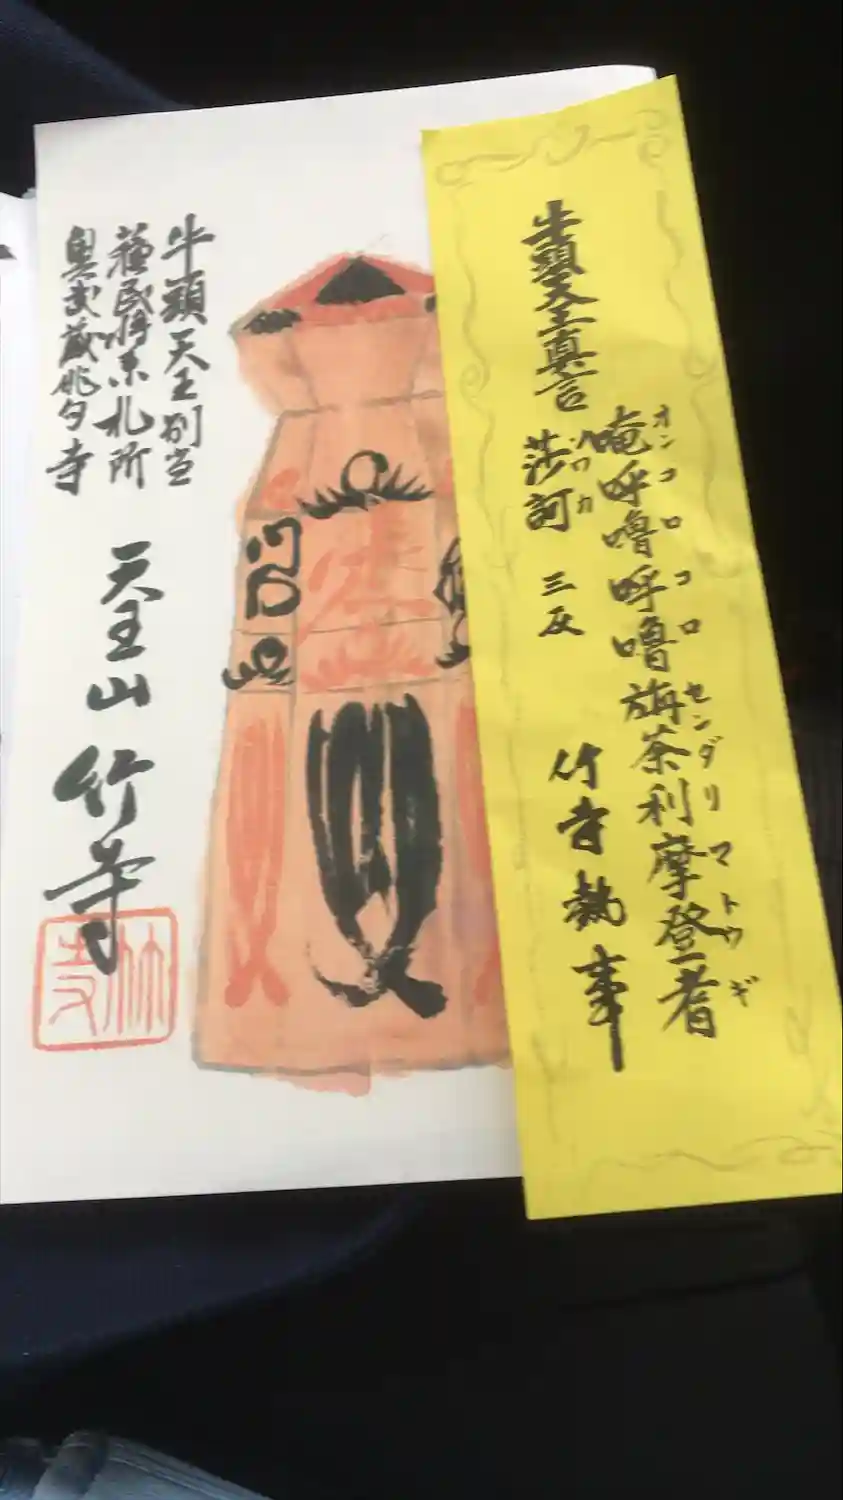 牛頭天王真言
唵呼嚕呼嚕旃荼利摩登耆
オンコロコロセンダリマトウギ
莎訶 三反
ソワカ
竹寺執事
牛頭天王別当
蘇民将来札所
奥武蔵俳句寺
天王山 竹寺
竹寺